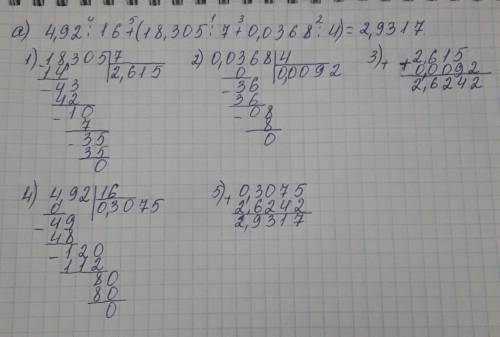 а) 4,92 :⁴ 16 +⁵ (18,305 :¹ 7 +³ 0,0368 :² 4) = 2,9317
1) 18,305 | 7
14 | 2,615
- 43
42
- 10
7
- 35
35
0
2) 0,0368 | 4
0 | 0,0092
- 36
36
- 08
8
0
3) + 2,615
+ 0,0092
2,6242
4) 4,92 | 16
0 | 0,3075
- 49
48
- 120
112
80
80
0
5) + 0,3075
2,6242
2,9317